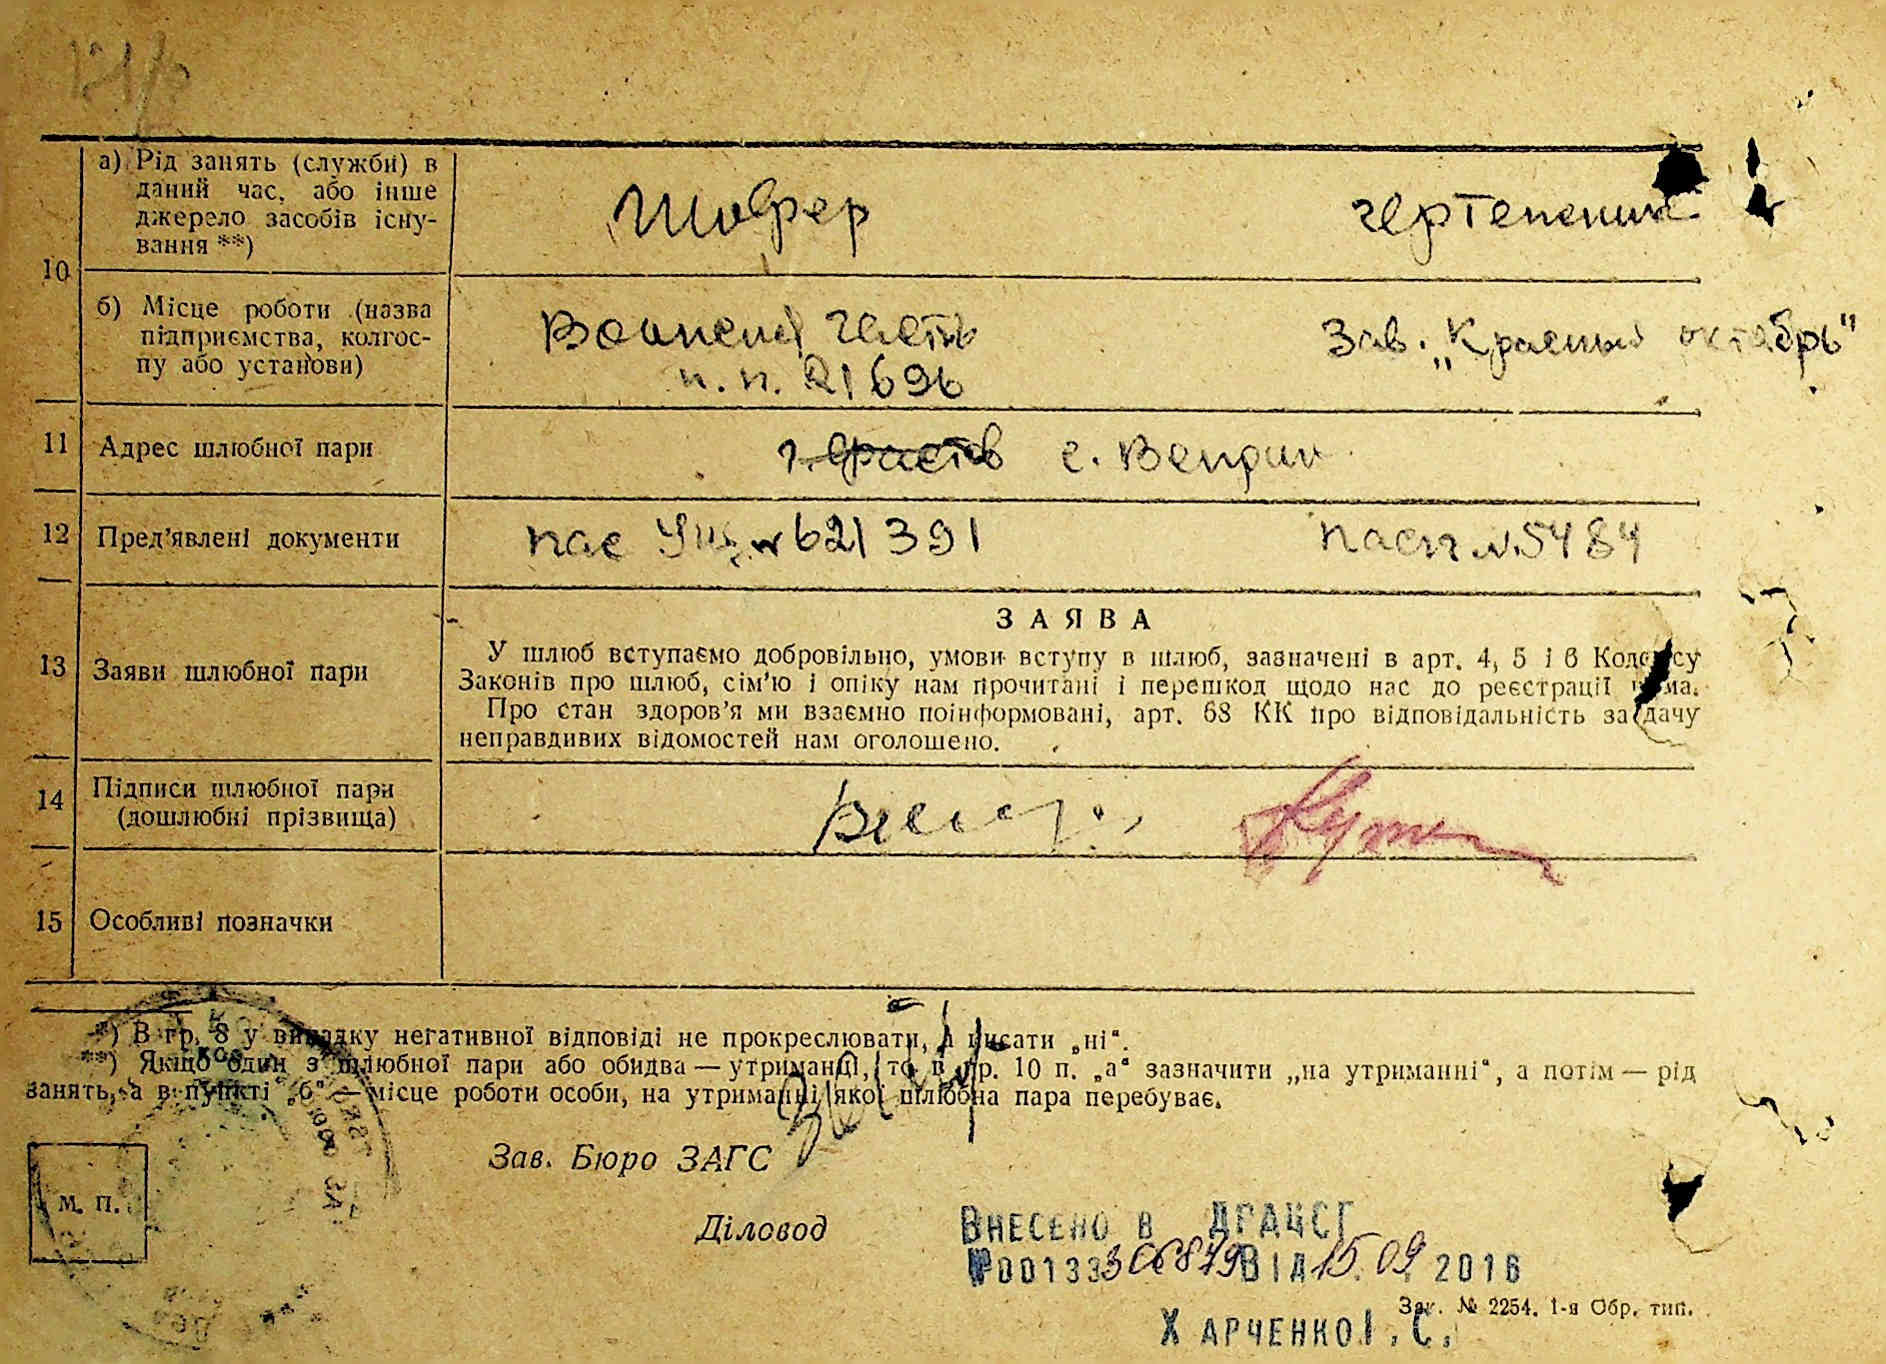 а) Рід занять (служби) в
даний час, або інше
джерело засобів існу-
вання **)
Шофер
чертежник
10
б) Місце роботи (назва
підприємства, колгос-
пу або установи)
п. п. 21696
Зав. „Красный октябрь"
11
Адрес шлюбної пари
с. Вендин
12
Пред'явлені документи
пас
№ 621391
пасп № 5484
13
Заяви шлюбної пари
ЗАЯВА
У шлюб вступаємо добровільно, умови вступу в шлюб, зазначені в арт. 4, 5 і 6 Кодексу
Законів про шлюб, сім'ю і опіку нам прочитані і перешкод щодо нас до реєстрації нема.
Про стан здоров'я ми взаємно поінформовані, арт. 68 КК про відповідальність за дачу
неправдивих відомостей нам оголошено.
14
Підписи шлюбної пари
(дошлюбні прізвища)
15
Особливі позначки
*) В гр. 8 у випадку негативної відповіді не прокреслювати, а писати „ні".
**) Якщо один з шлюбної пари або обидва — утриманці, то в гр. 10 п. „а" зазначити „на утриманні", а потім — рід
занять, а в пункті „б" — місце роботи особи, на утриманні якої шлюбна пара перебуває.
Зав. Бюро ЗАГС
М. П.
Діловод
ВНЕСЕНО В ДРАЦСГ
№00133306879 ВІД 15.09.2016
Зак. № 2254. 1-я Обр. тип.
ХАРЧЕНКО І. С.